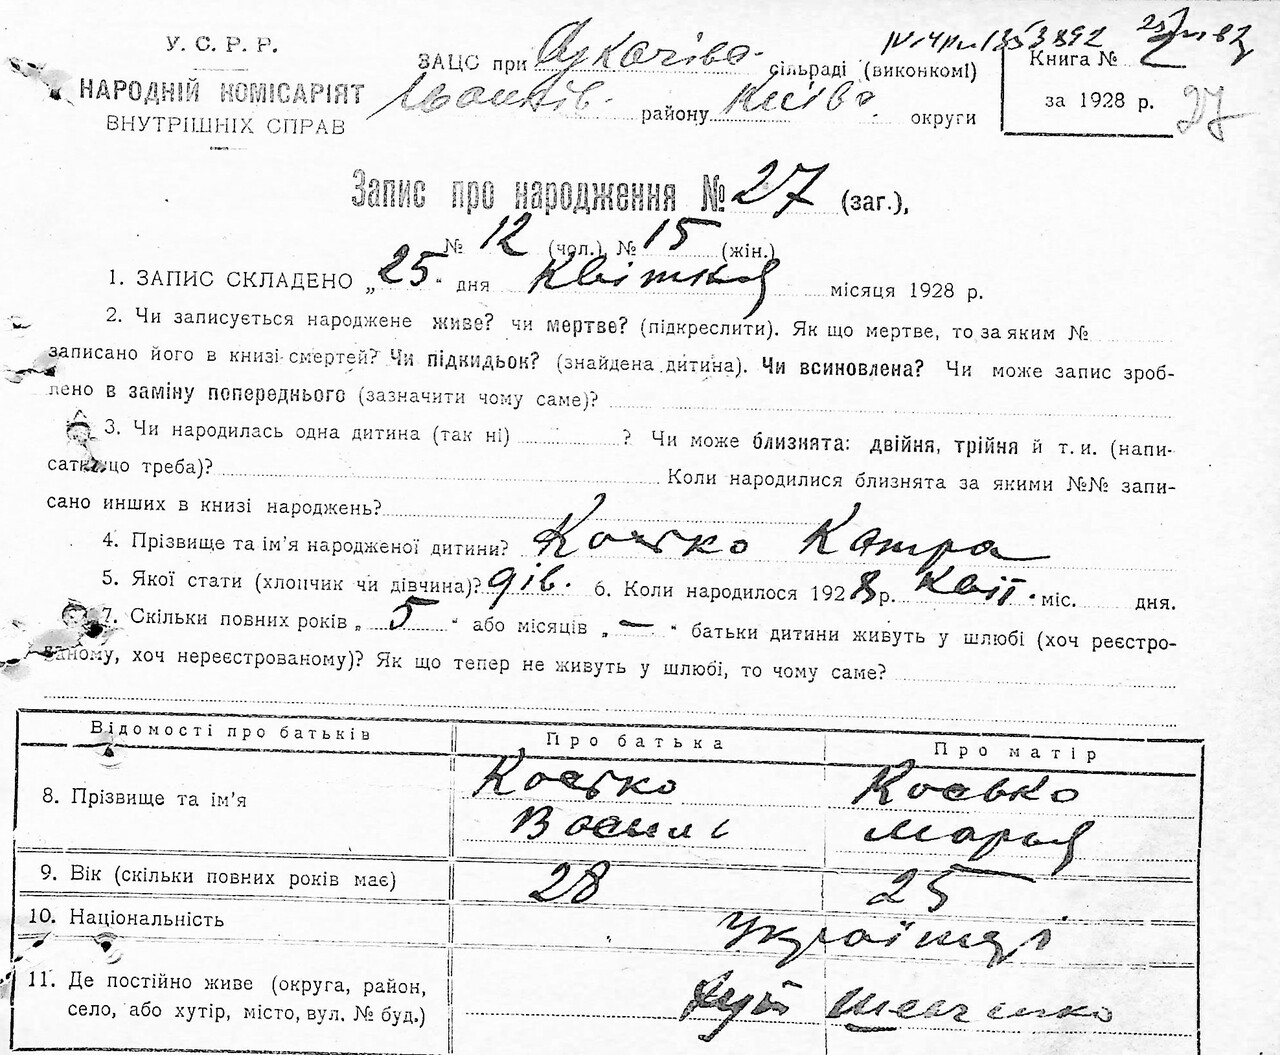 У. С. Р. Р.
НАРОДНІЙ КОМІСАРІЯТ
ВНУТРІШНІХ СПРАВ
ЗАЦС при сільраді (виконкомі)
району Київ округи
Книга № 2
за 1928 р.
27
Запис про народження № 27 (заг.),
№ 12 (чол.) № 15 (жін.)
1. ЗАПИС СКЛАДЕНО „25" дня Квітня місяця 1928 р.
2. Чи записується народжене живе? чи мертве? (підкреслити). Як що мертве, то за яким №
записано його в книзі смертей? Чи підкидьок? (знайдена дитина). Чи всиновлена? Чи може запис зроб-
лено в заміну попереднього (зазначити чому саме)?
3. Чи народилась одна дитина (так ні) ? Чи може близнята: двійня, трійня й т. и. (напи-
сати що треба)? Коли народилися близнята за якими №№ запи-
сано инших в книзі народжень?
4. Прізвище та ім'я народженої дитини? Косько Катря
5. Якої стати (хлопчик чи дівчина)? дів. 6. Коли народилося 1928 р. Квіт. міс. дня.
7. Скільки повних років „ 5 " або місяців „ — " батьки дитини живуть у шлюбі (хоч реєстро-
ваному, хоч нереєстрованому)? Як що тепер не живуть у шлюбі, то чому саме?
Відомості про батьків Про батька Про матір
8. Прізвище та ім'я Косько Василь Косько Марья
9. Вік (скільки повних років має) 28 25
10. Національність Українці
11. Де постійно живе (округа, район,
село, або хутір, місто, вул. № буд.) Хут Шевченко